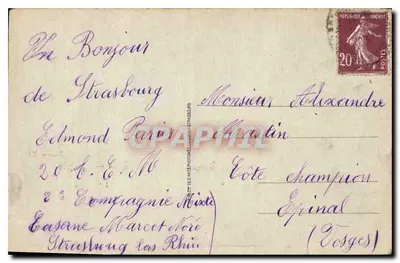 Un Bonjour
de Strasbourg
Edmond Paris
20 C. E. M
2e Compagnie Mixte
Caserne Marcet Noré
Strasbourg bas Rhin
REPUBLIQUE FRANCAISE
20c
POSTES
Monsieur Alexandre
Martin
Côte champion
Epinal
(Vosges)
CPAPHIL.COM